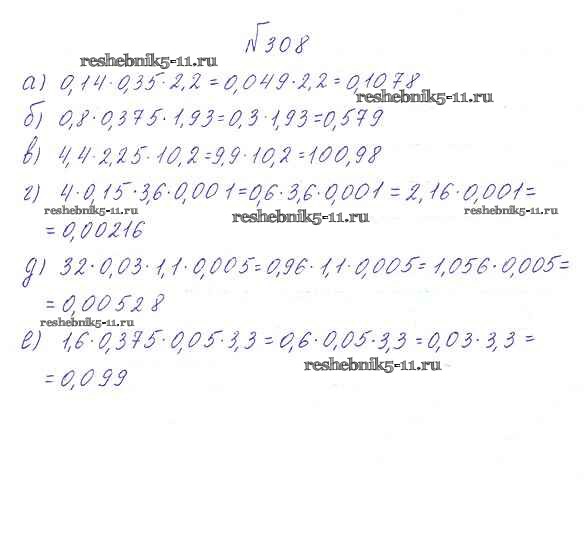 №308
reshebnik5-11.ru
а) 0,14·0,35·2,2=0,049·2,2=0,1078
reshebnik5-11.ru
б) 0,8·0,375·1,93=0,3·1,93=0,579
в) 4,4·2,225·10,2=9,9·10,2=100,98
г) 4·0,15·3,6·0,001=0,6·3,6·0,001=2,16·0,001=
reshebnik5-11.ru reshebnik5-11.ru reshebnik5-11.ru
=0,00216
д) 32·0,03·1,1·0,005=0,96·1,1·0,005=1,056·0,005=
=0,00528
reshebnik5-11.ru
е) 1,6·0,375·0,05·3,3=0,6·0,05·3,3=0,03·3,3=
reshebnik5-11.ru
=0,099